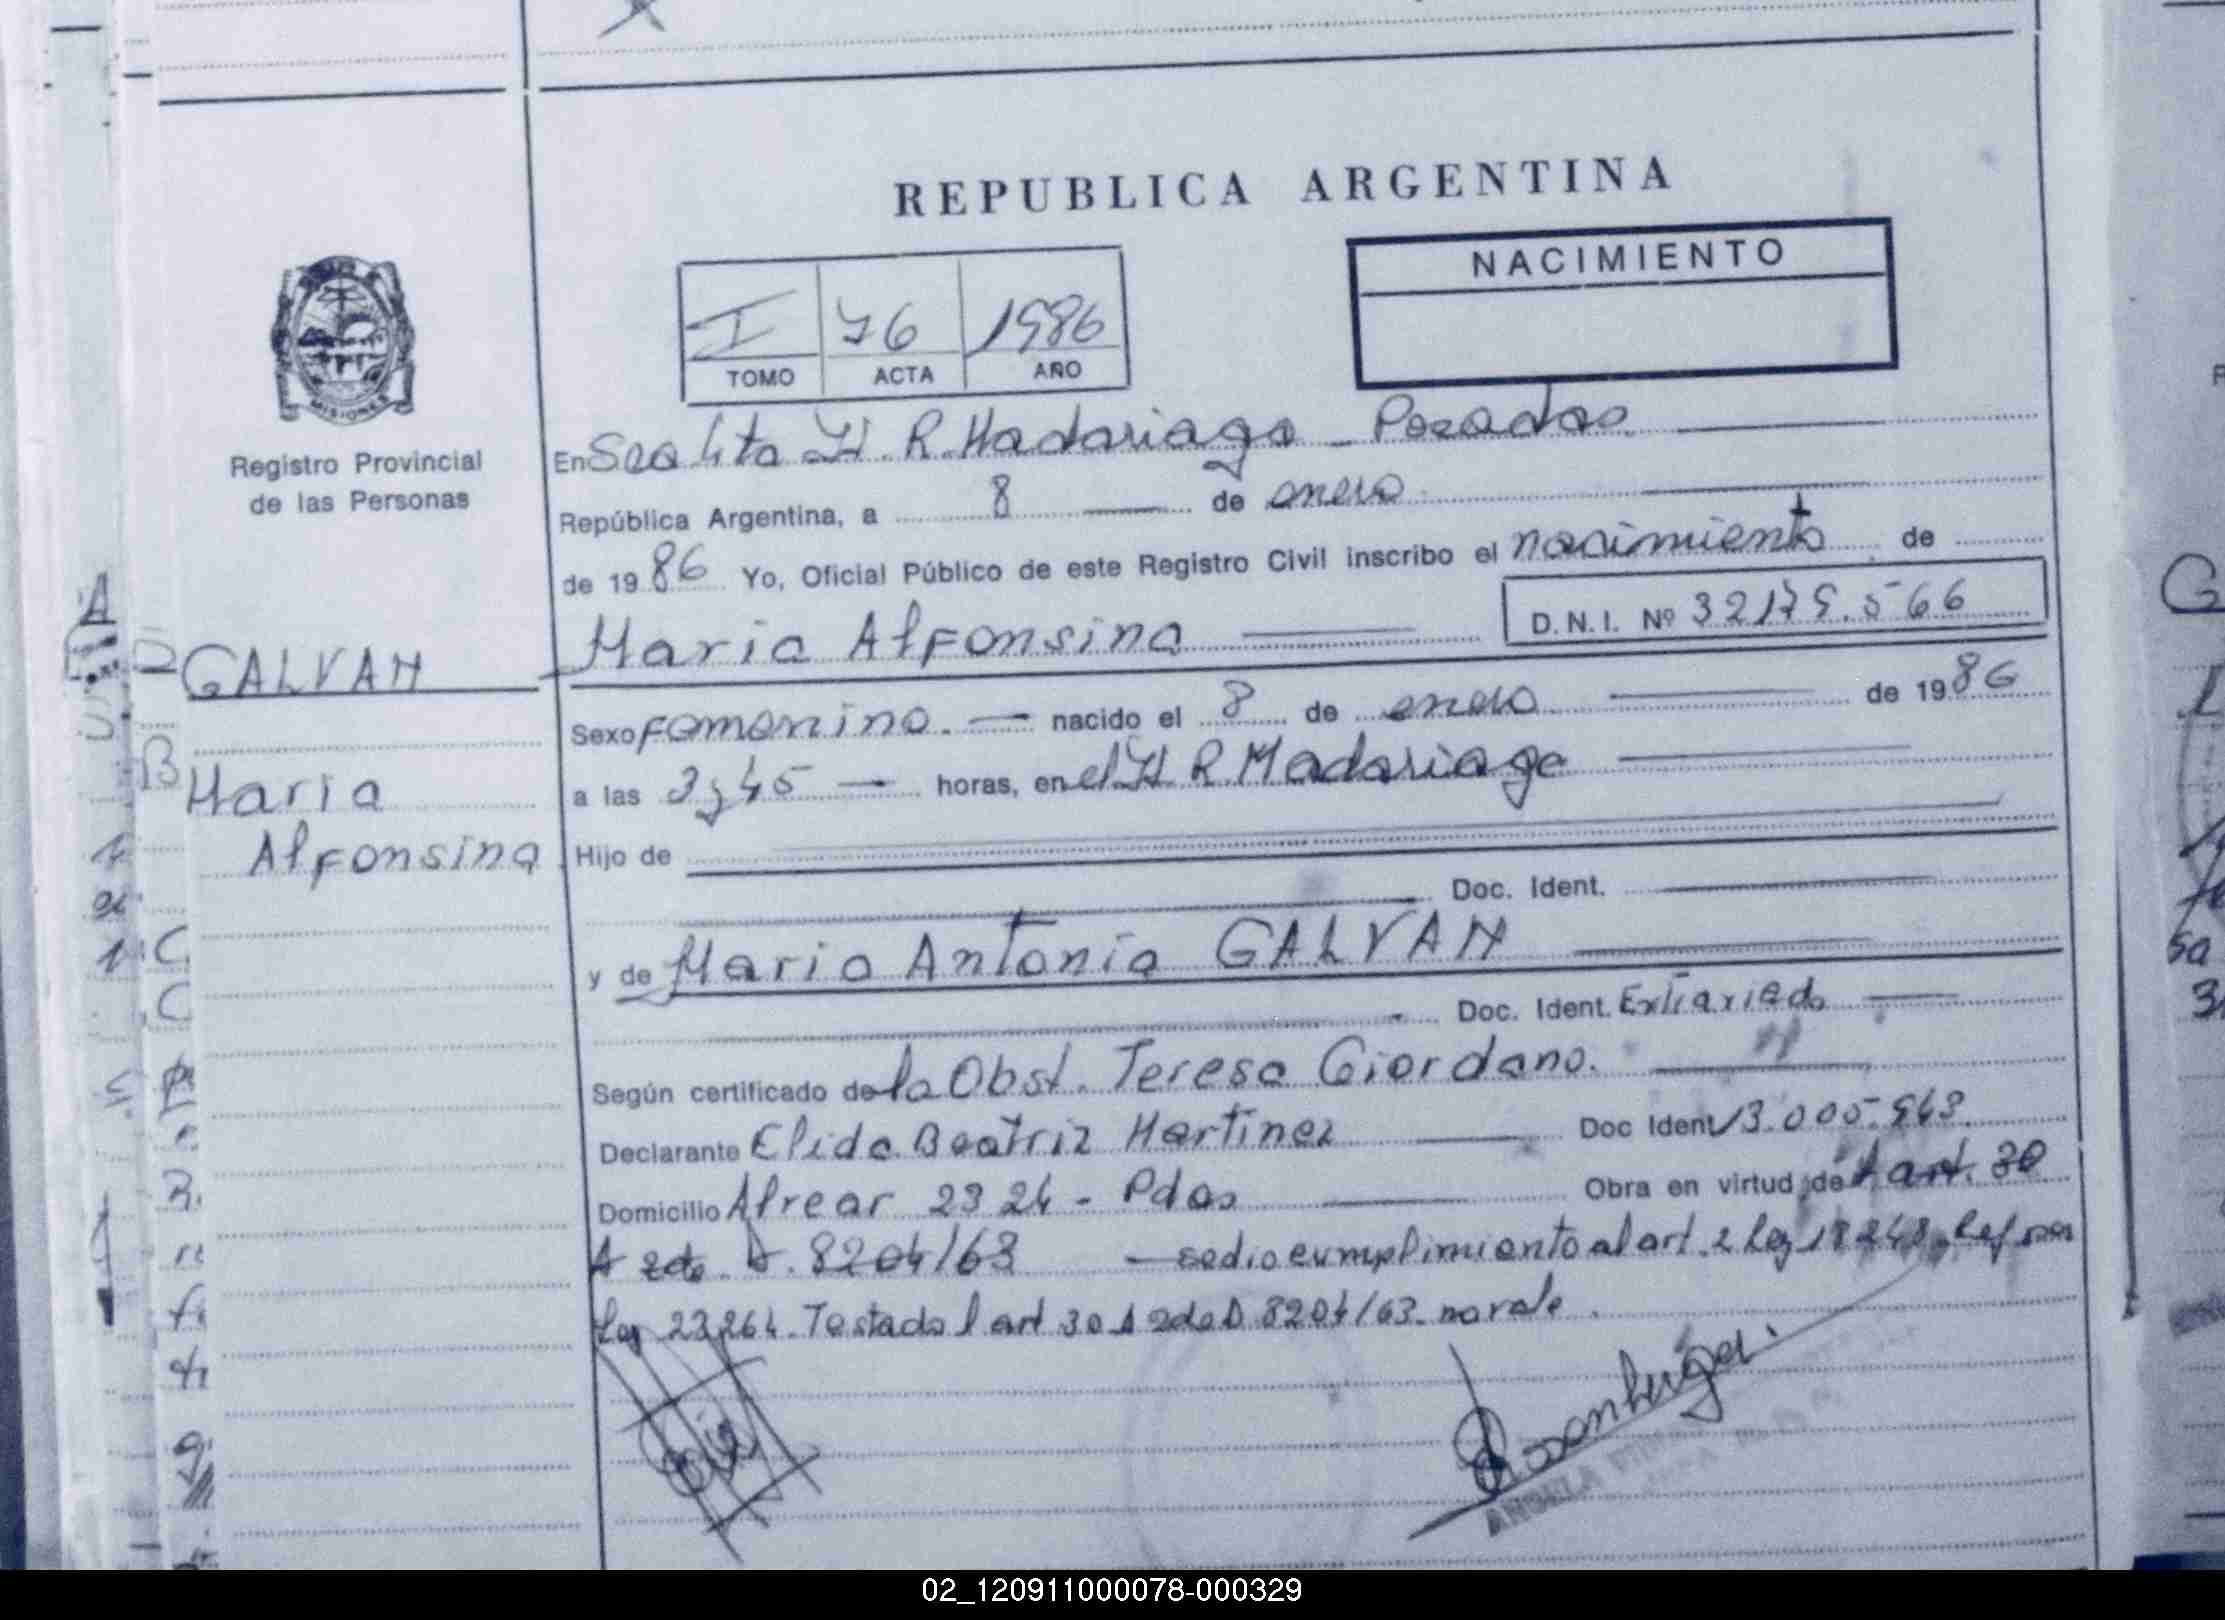 REPUBLICA ARGENTINA
NACIMIENTO
I 76 1986
TOMO ACTA AÑO
MISIONES
Registro Provincial
de las Personas
En Secc 4ta H. R. Madariaga - Posadas
República Argentina, a 8 de enero
de 1986 Yo, Oficial Público de este Registro Civil inscribo el nacimiento de
Maria Alfonsina D.N.I. Nº 32.179.566
GALVAN
Sexo femenino. nacido el 8 de enero de 1986
Maria
a las 3 y 45 horas, en el H R Madariaga
Alfonsina
Hijo de
Doc. Ident.
y de Maria Antonia GALVAN
Doc. Ident. Extraviado
Según certificado de la Obst. Teresa Giordano.
Declarante Elida Beatriz Martinez Doc Ident 13.005.943.
Domicilio Alvear 2324 - Pdas Obra en virtud de l art. 30
A 2do D. 8204/63 se dio cumplimiento al art. 2 Ley 18248 Ref por
Ley 23264. Testado l art 30 A 2do D 8204/63 no vale.
ANGELA
02_120911000078-000329